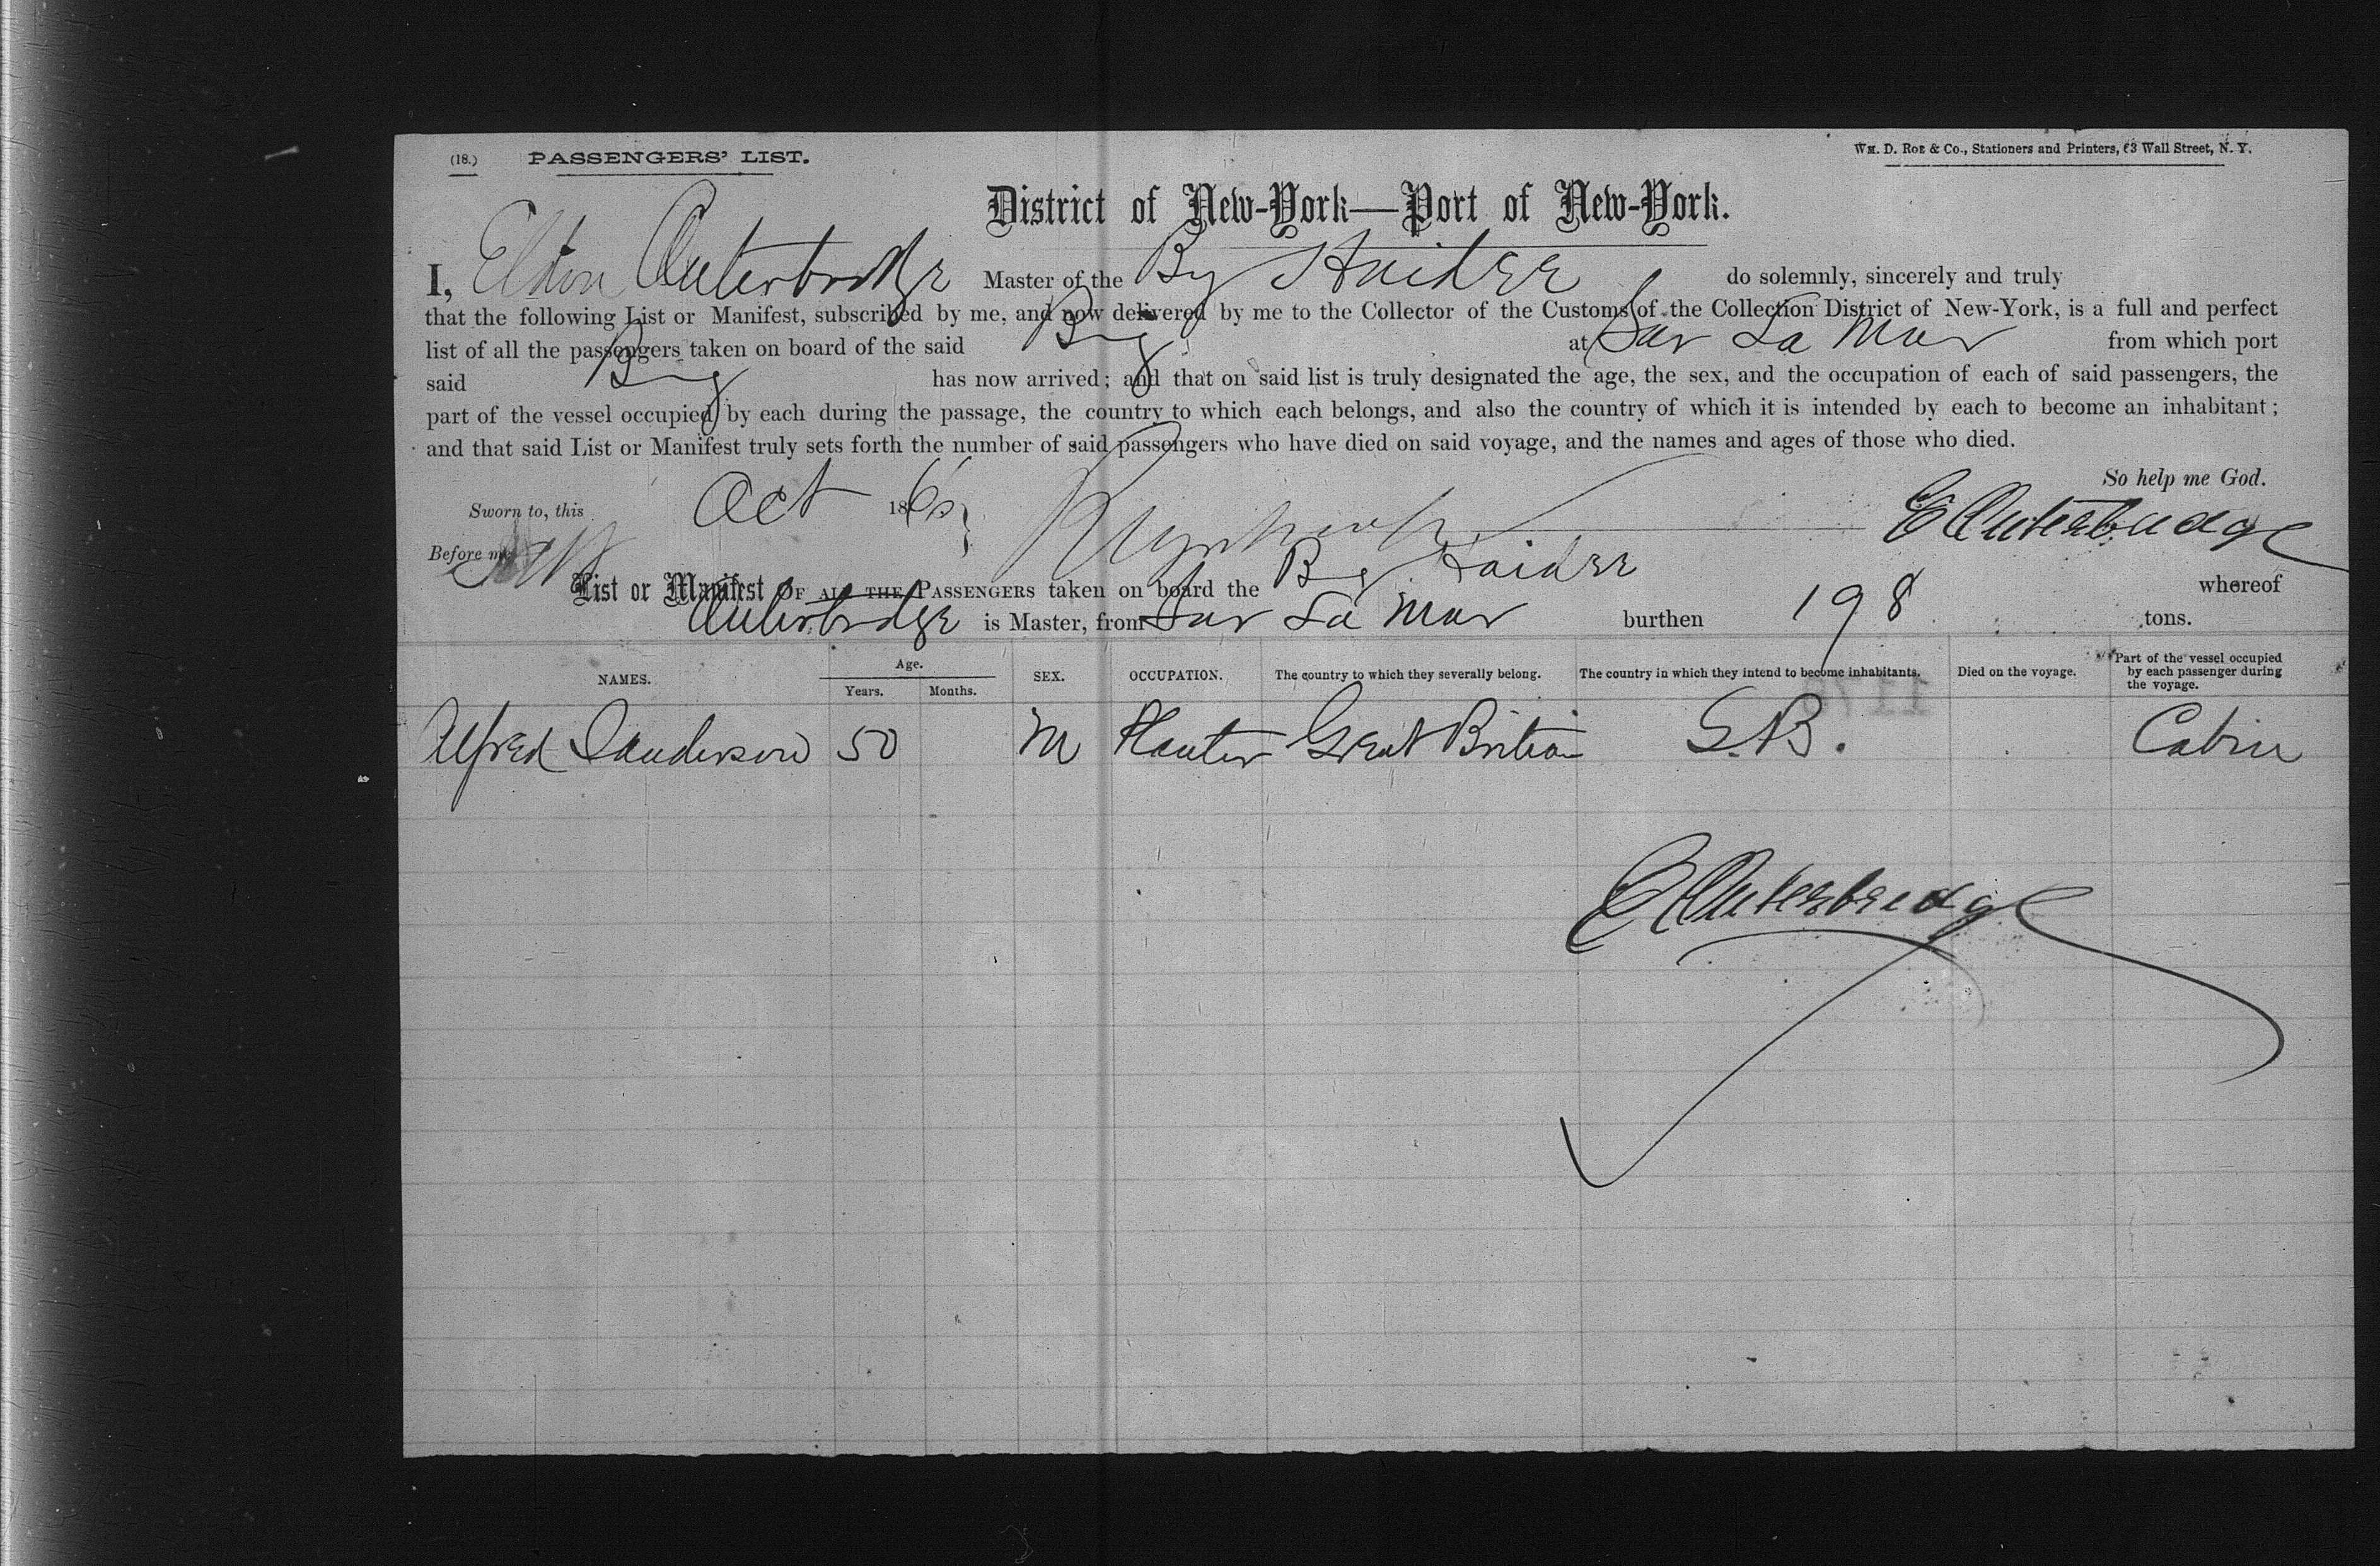 (18.) PASSENGERS' LIST. WM. D. ROE & Co., Stationers and Printers, 63 Wall Street, N. Y.
District of New-York—Port of New-York.
I, Elton Outerbridge Master of the Bg Haidee do solemnly, sincerely and truly
that the following List or Manifest, subscribed by me, and now delivered by me to the Collector of the Customs of the Collection District of New-York, is a full and perfect
list of all the passengers taken on board of the said Brig at Sav La Mar from which port
said Brig has now arrived; and that on said list is truly designated the age, the sex, and the occupation of each of said passengers, the
part of the vessel occupied by each during the passage, the country to which each belongs, and also the country of which it is intended by each to become an inhabitant;
and that said List or Manifest truly sets forth the number of said passengers who have died on said voyage, and the names and ages of those who died.
So help me God.
Sworn to, this Oct 18 E Outerbridge
Before me
List or Manifest OF ALL THE PASSENGERS taken on board the Bg Haidee whereof
Outerbridge is Master, from Sav La Mar burthen 198 tons.
NAMES. Age. Years. Months. SEX. OCCUPATION. The country to which they severally belong. The country in which they intend to become inhabitants. Died on the voyage. Part of the vessel occupied by each passenger during the voyage.
Alfred Sanderson 50 M Planter Great Britian G.B. Cabin
E Outerbridge